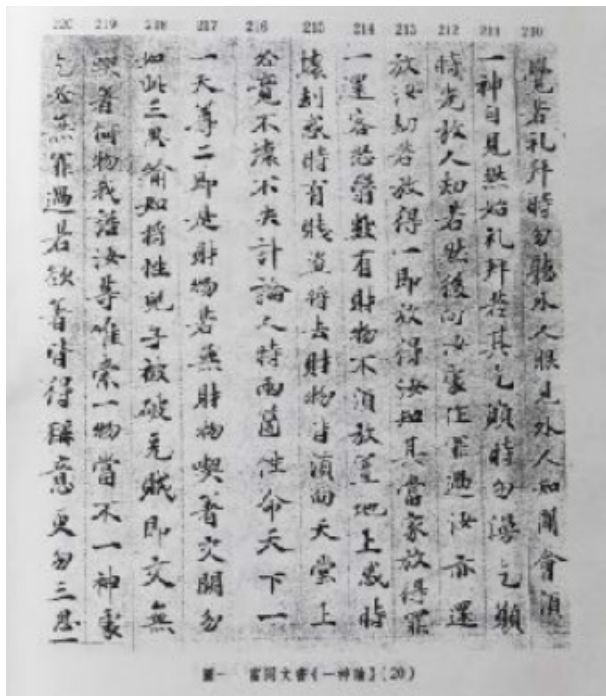 220 219 218 217 216 215 214 213 212 211 210
覺若礼拜時勿聽外人眼見外人知聞會須
一神自見然始礼拜若其乞願時勿漫乞願
時先放人劫若然後向汝處作罪過汝亦還
放汝劫若放得一即放得汝知其當家放得罪
一還客怒翳數有財物不須放置地上或時
壞劫或時有賊盜將去財物皆須向天堂上
必竟不壞不失計論人時兩箇性命天下一
一天尊二即是財物若無財物喫著交闕勿
如此三思喻如將性兒子被破充賊即交無
喫著何物我語汝等唯索一物當不一神處
乞必無罪過若欲著皆得稱意更勿三思一
圖一 富岡文書《一神論》(20)